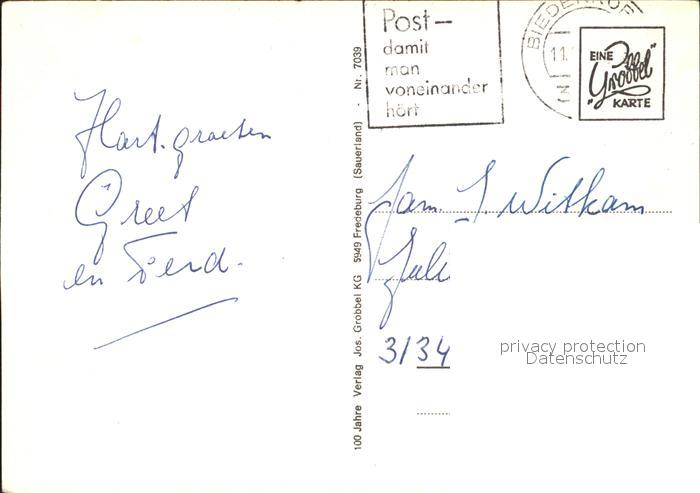 Hart. groeten
Greet
en Ferd.
100 Jahre Verlag Jos. Grobbel KG 5949 Fredeburg (Sauerland) · Nr. 7039
Post –
damit
man
voneinander
hört
BIEDENKOPF
11.
EINE
"Grobbel"
KARTE
Fam. J. Witkam
Juli
3134
privacy protection
Datenschutz